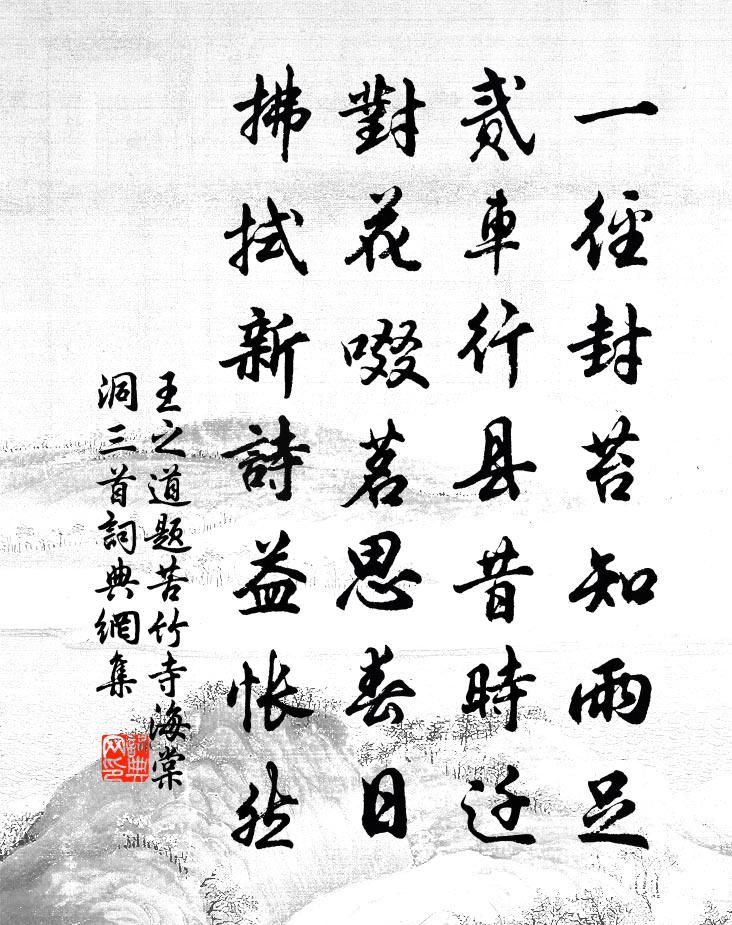 一徑封苔知雨足
貳車行县昔時迁
對花啜茗思春日
拂拭新詩益悵然
王之道題苦竹寺海棠
洞三首詞典網集
詞典网印